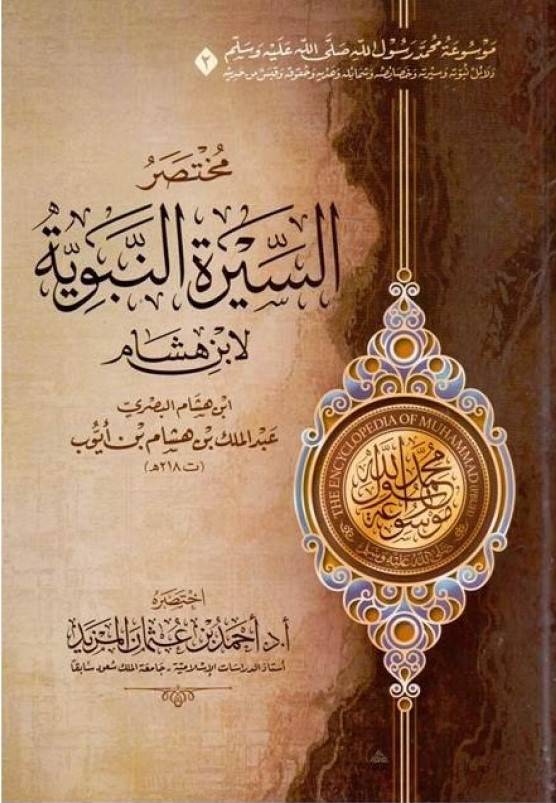 مَوْسُوعَةُ مُحَمَّد رَسُوْل اللّٰه صَلَّى اللّٰه عَلَيْهِ وَسَلَّم
دَلَائِلُ نُبُوَّتِه وَسِيْرَتِه وَخَصَائِصُه وَشَمَائِلُه وَهَدْيِه وَحُقُوقُه وَقَبَسٌ مِنْ
٢
مُخْتَصَرُ
السِّيْرَةِ النَّبَوِيَّةِ
لابْنِ هِشَام
ابْنِ هِشَامِ البَصْرِيّ
عَبْدِ المَلِك بْنِ هِشَامِ بْنِ أَيُّوب
(ت ٢١٨هـ)
THE ENCYCLOPEDIA OF MUHAMMAD
مَوْسُوعَة مُحَمَّد رَسُوْل اللّٰه
صَلَّى اللّٰه عَلَيْهِ وَسَلَّم
اخْتَصَرَهُ
أ.د. أَحْمَدُ بْنُ عُثْمَان المَزْيَد
أستاذ الدراسات الإسلامية - جامعة الملك سعود سابقًا